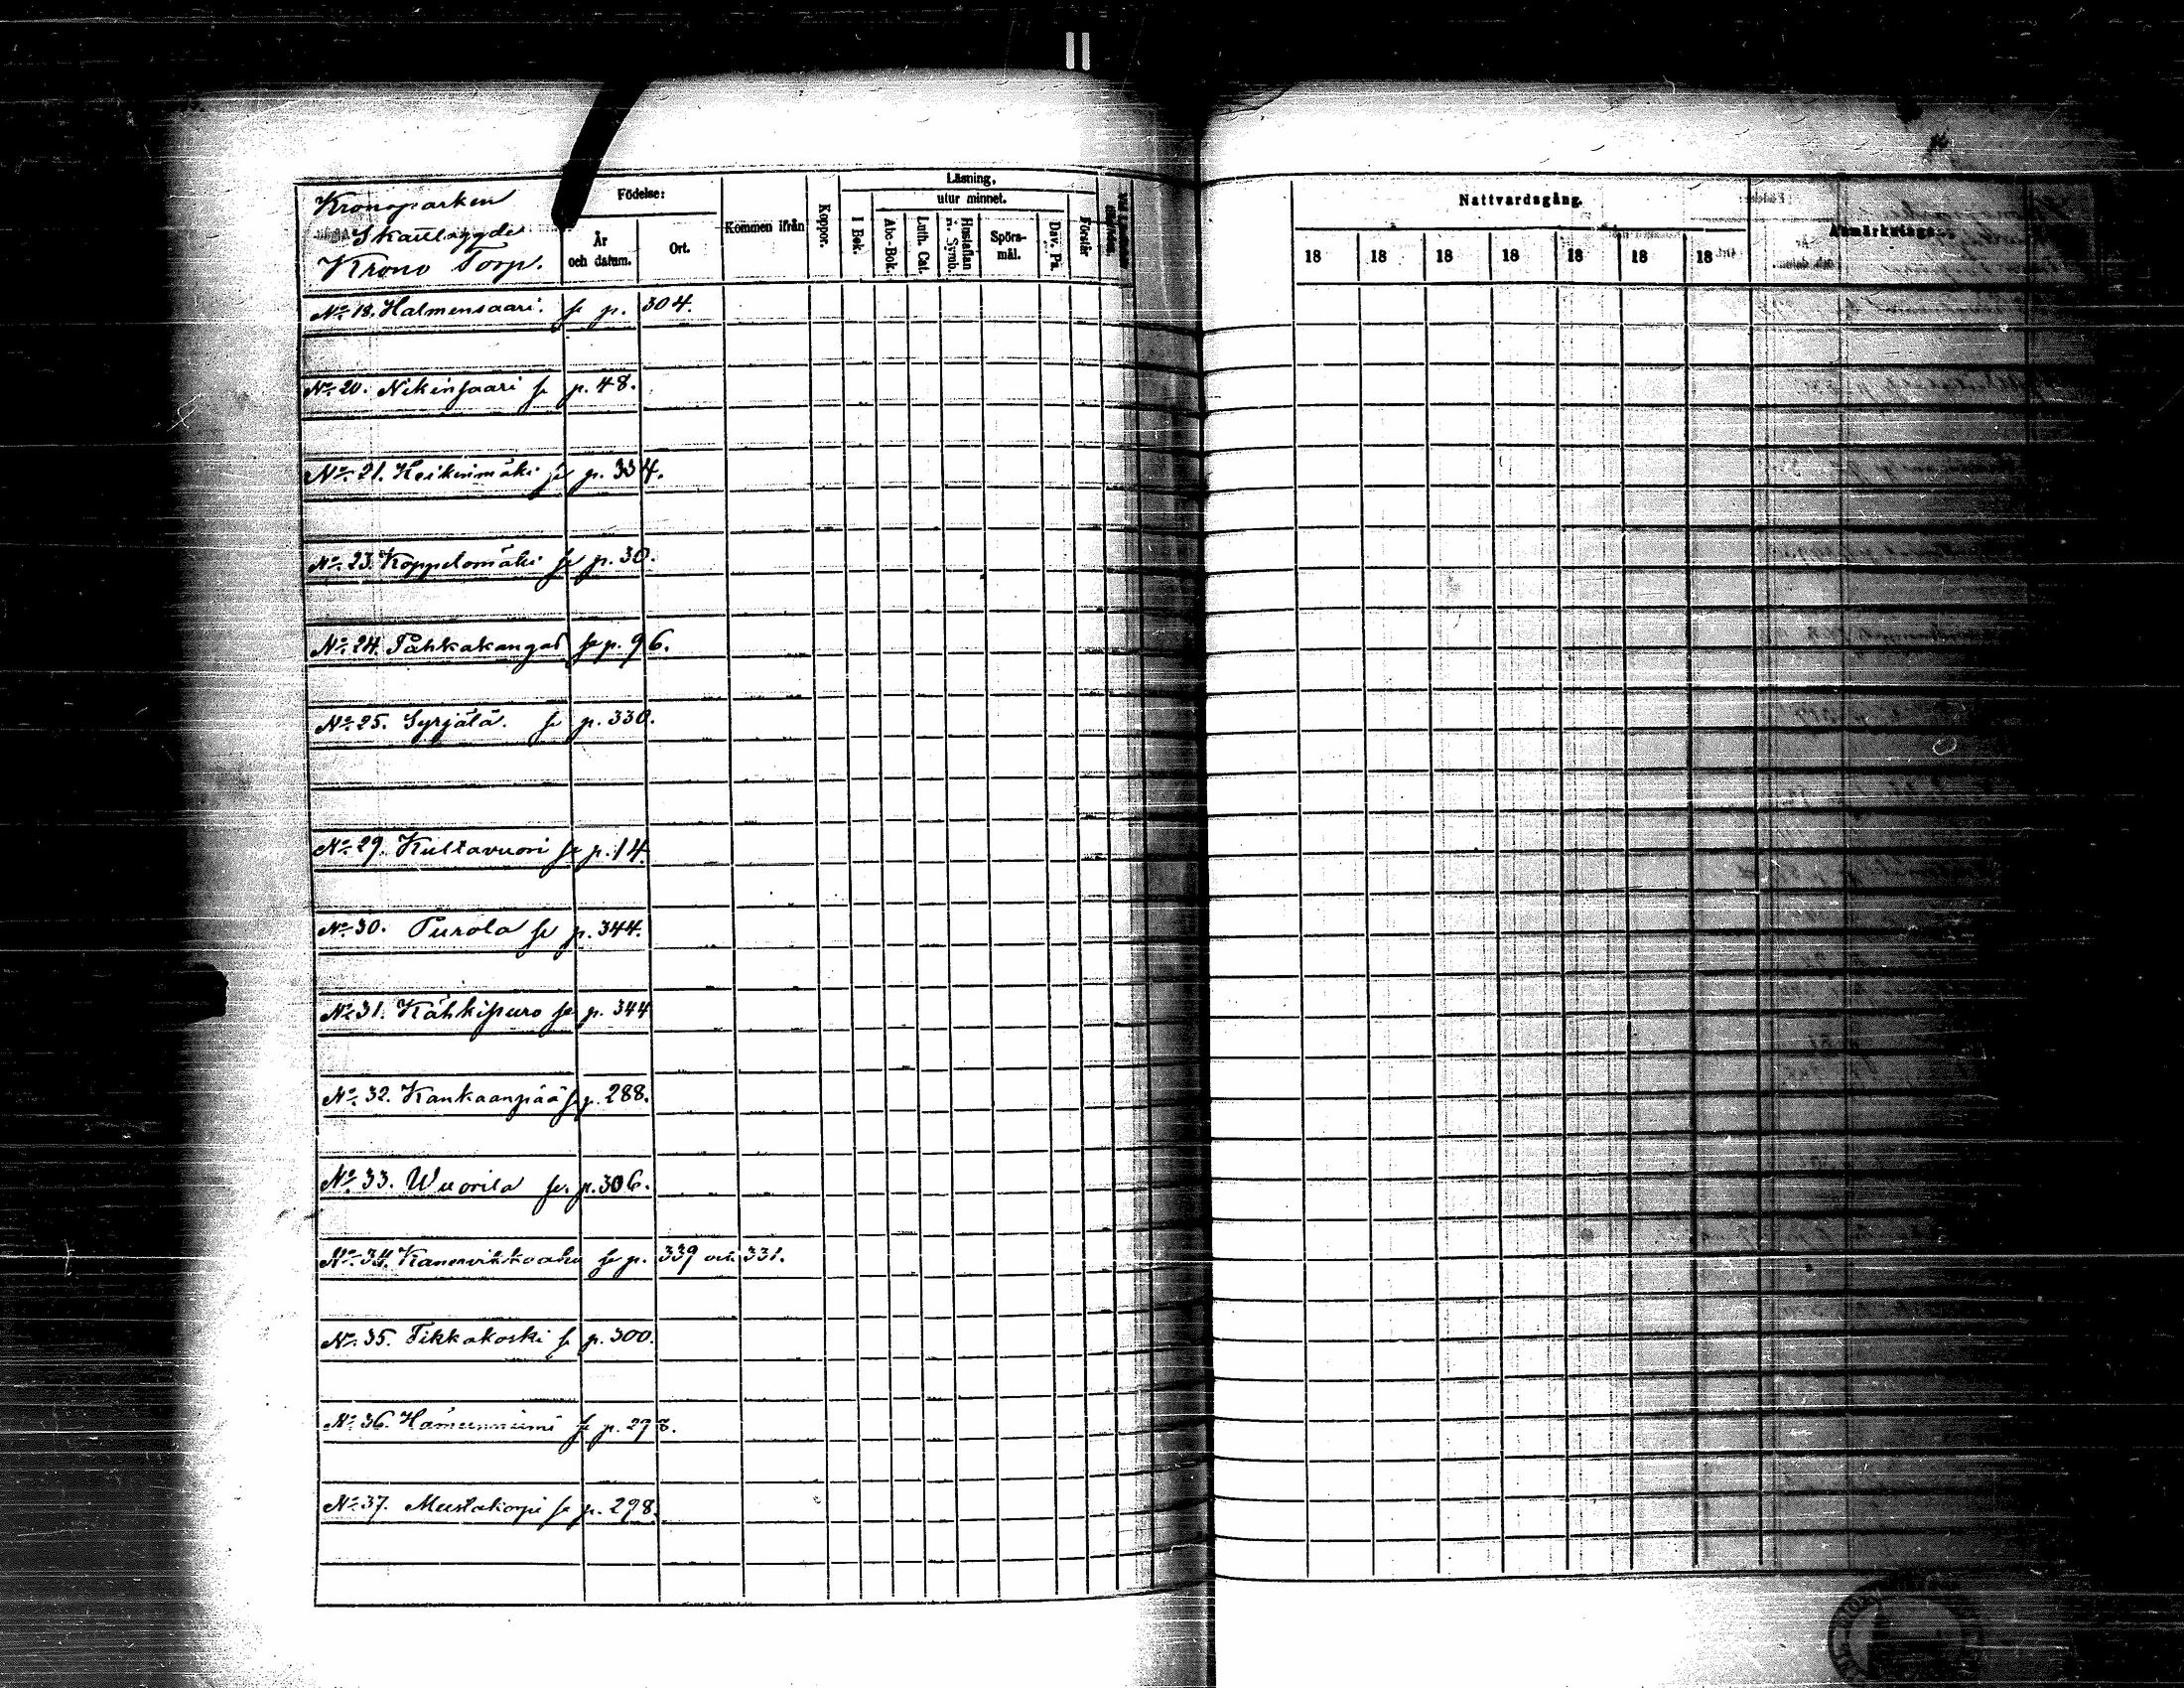 Kronoparken
Skattlagde
Krono Torp.
Födelse:
År och datum.
Ort.
Kommen ifrån
Koppor.
Läsning,
utur minnet.
I Bok.
Abc-Bok.
Luth. Cat.
Hustaflan
Symb.
Spörs-
mål.
Dav. Ps.
Förstår
Nattvardsgång.
18 18 18 18 18 18 18
Anmärkningar
No. 18. Halmensaari. se p. 304.
No. 20. Nikinsaari se p. 48.
No. 21. Heikinmäki se p. 334.
No. 23. Koppelomäki se p. 30.
No. 24. Pähkakangas se p. 96.
No. 25. Syrjälä. se p. 330.
No. 29. Kultavuori se p. 14
No. 30. Purola se p. 344.
No. 31. Kähkipuro se p. 344
No. 32. Kankaanpää se p. 288.
No. 33. Wuorila se. p. 306.
No. 34. Kanervikkoaho se p. 339 och 331.
No. 35. Tikkakoski se p. 300.
No. 36. Hämeenniemi se p. 278.
No. 37. Mustakorpi se p. 298.